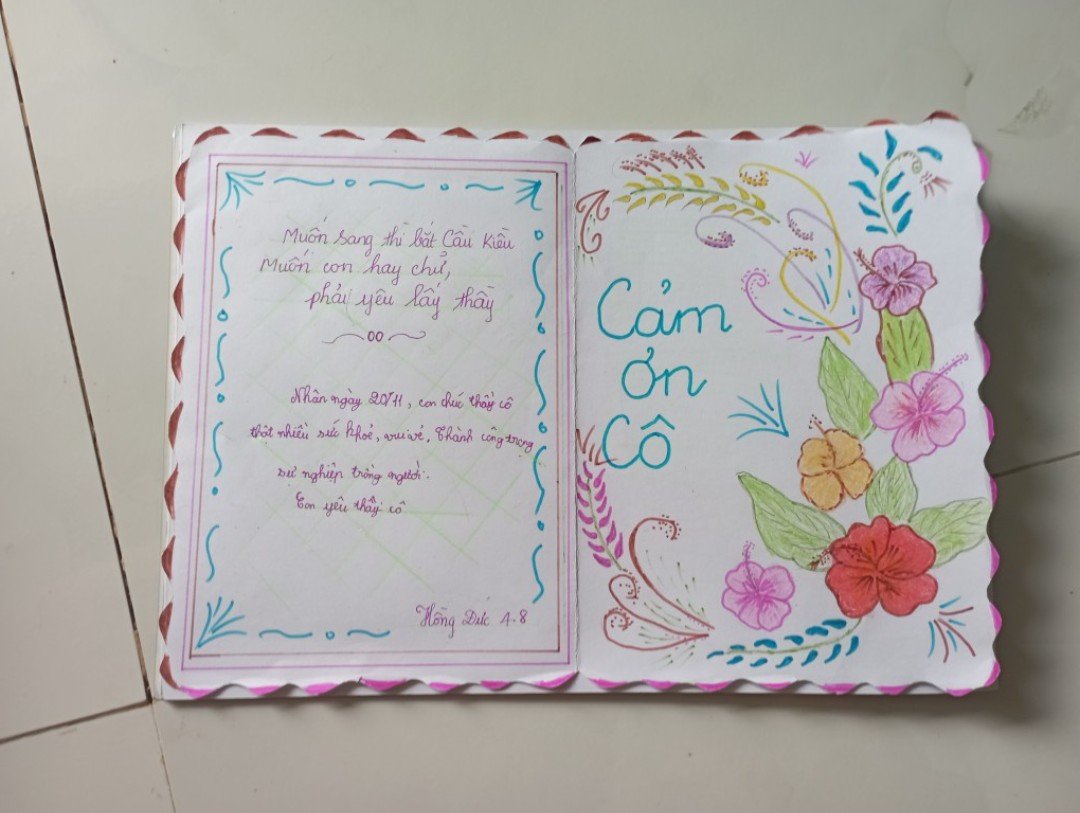 Muốn sang thì bắt Cầu Kiều
Muốn con hay chữ,
phải yêu lấy thầy
Nhân ngày 20/11, con chúc thầy cô
thật nhiều sức khoẻ, vui vẻ, thành công trong
sự nghiệp trồng người.
Con yêu thầy cô
Hồng Đức 4.8
Cảm
ơn
Cô